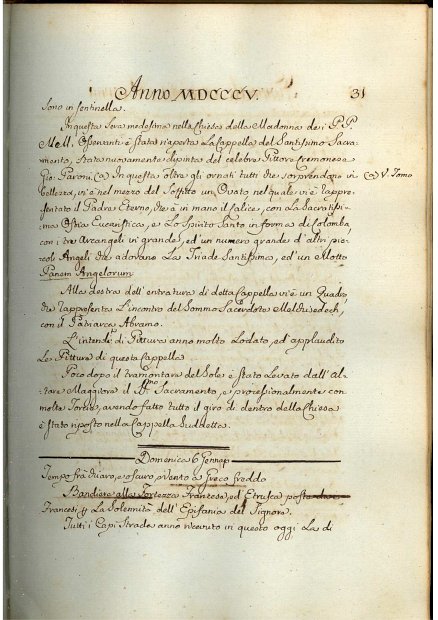 Anno MDCCCV. 31
sono in sentinella.
In questa sera medesima nella Chiesa della Madonna dei P.P.
M. Osservanti è stata riaperta La Cappella del Santissimo Sacra-
mento, stata nuovamente dipinta dal celebre Pittore Cremonese
Gio: (a) In questa, oltre gli ornati tutti che sorprendono in (a) V. Tomo
bellezza, vi è nel mezzo del Soffitto un Ovato nel quale vi è rappre-
sentato il Padre Eterno, che à in mano il calice, con La Sacratissi-
ma Ostia Eucaristica, e Lo Spirito Santo in forma di Colomba,
con i tre Arcangeli in grande, ed' un numero grande d'altri pic-
coli Angeli che adorano La Triade Santissima, ed un Motto
Panem Angelorum
Alla destra dell' entratura di detta Cappella vi è un Quadro
che rappresenta L'incontro del Sommo Sacerdote Melchisedech,
con il Patriarca Abramo.
L'intendenti di Pittura anno molto Lodato, ed applaudito
Le Pitture di questa Cappella
Poco dopo il tramontare del Sole è stato Levato dall' Al-
tare Maggiore il SSmo Sacramento, e processionalmente con
molte Torcie, avendo fatto tutto il giro di dentro della Chiesa
è stato riposto nella Cappella Suddetta.
Domenica 6 Gennajo
Tempo frà chiaro, e oscuro, Vento a Greco freddo
Bandiere alla Fortezza Francese, ed Etrusca
Francesi, p La Solennità dell' Epifania del Signore.
Tutti i Capi Strada anno ricevuto in questo oggi La di